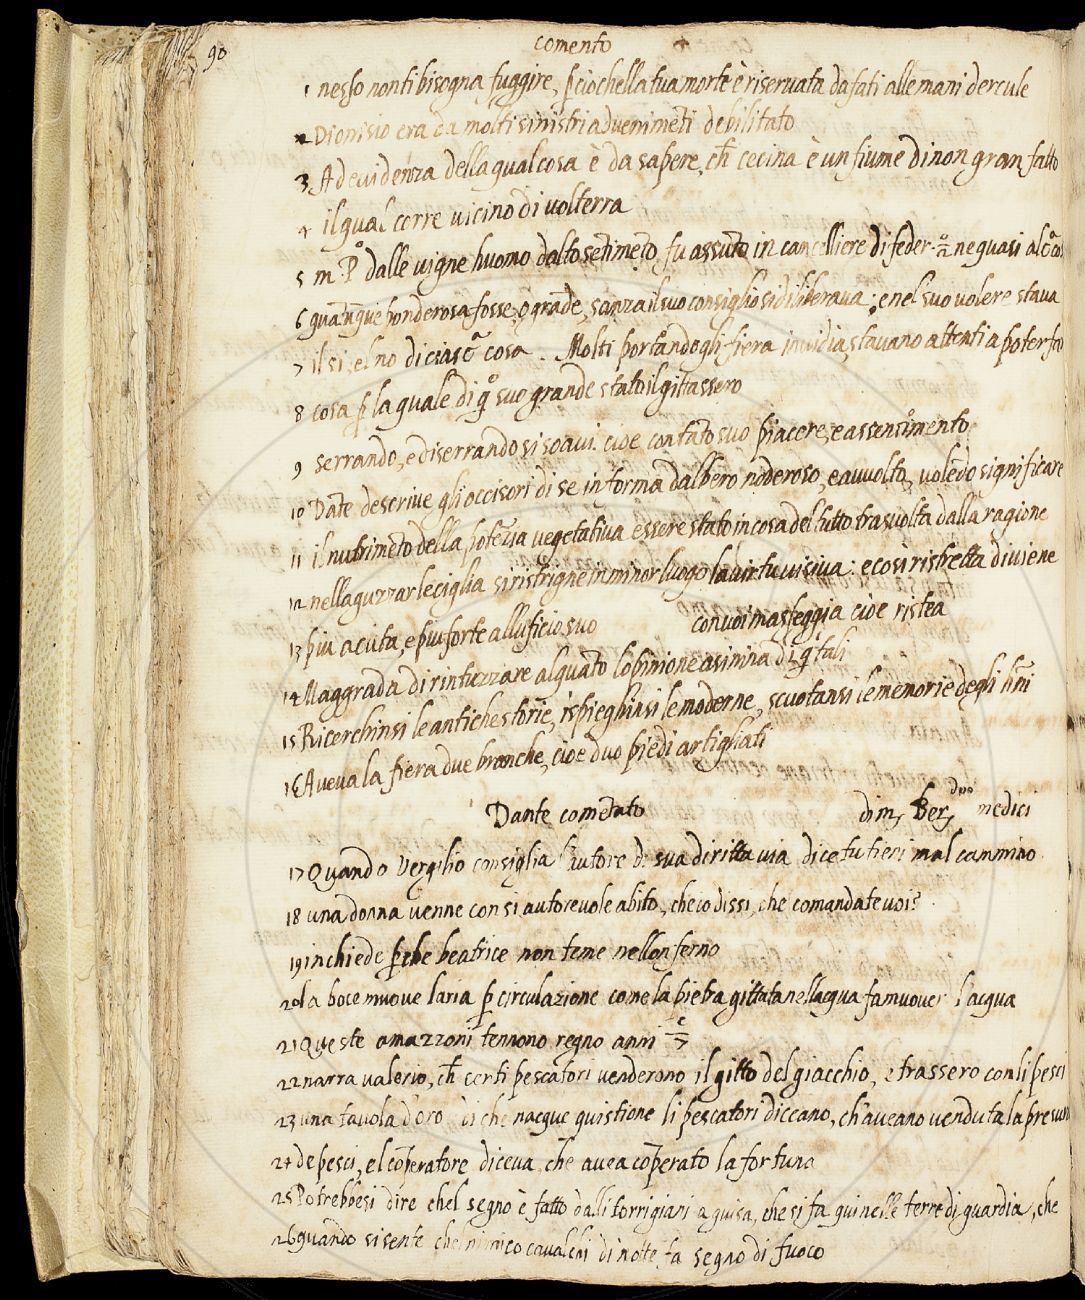 90
comento
1 nesso non ti bisogna fuggire, ꝑcioche lla tua morte è riservata da fati alle mani dercule
2 Dionisio era da molti sinistri advenimēti debilitato
3 Ad evidenza della qual cosa è da sapere, ch̄ cecina è un fiume di non gran fatto
4 il qual corre vicino di volterra
5 m. Pº dalle vigne huomo dalto setimēto, fu assunto in cancelliere di feder.º 2º ne quasi alcº co
6 quātūque ponderosa fosse, o grāde, sanza il suo consiglio si diliberava; e nel suo volere stava
7 il si, el no di ciasc̄ª cosa. Molti portandogli fiera invidia, stavano attenti a poter far
8 cosa ꝑ la quale di qº suo grande stato il gittassero
9 serrando, e diserrando si soavi. cioe con tāto suo piacere, e assentimento
10 Dāte descrive gli occisori di se in forma dalbero noderoso, e avvolto, volēdo significare
11 il nutrimēto della potēzia vegetativa essere stato in cosa del tutto trasvolta dalla ragione
12 nellaguzzar le ciglia si ristrigne in minor luogo la virtu visiva: e così ristretta diviene
13 piu acuta, e piu forte alluficio suo convoi masteggia cioe ristea
14 Maggrada di rintuzzare alquāto lopinione asinina di q̄ tali
15 Ricerchinsi le antiche storie, ispieghinsi le moderne, scuotansi le memorie degli hōni
16 Aveva la fiera due branche, cioe duo piedi artigliati
Dante comētato di m, Ber, dno medici
17 Quando Vergilio consiglia lautore di sua diritta via dice tu tieri mal cammino
18 una donna venne con si autorevole abito, che io dissi, che comandate voi?
19 inchiede ꝑche beatrice non teme nellonferno
20 la boce muove laria ꝑ circulazione come la pietra gittata nellacqua fa muover lacqua
21 Queste amazzoni tennono regno anni
22 narra valerio, ch̄ certi pescatori venderono il gitto del giacchio, e trassero con li pesci
23 una tavola doro di che nacque quistione li pescatori diceano, ch'aveano venduta la presura
24 de pesci, el cōperatore diceva che avea cōperato la fortuna
25 Potrebbesi dire chel segno è fatto dalli torrigiani a guisa, che si fa qui nelle terre di guardia, che
26 quando si sente chel nimico cavalchi di notte fa segno di fuoco